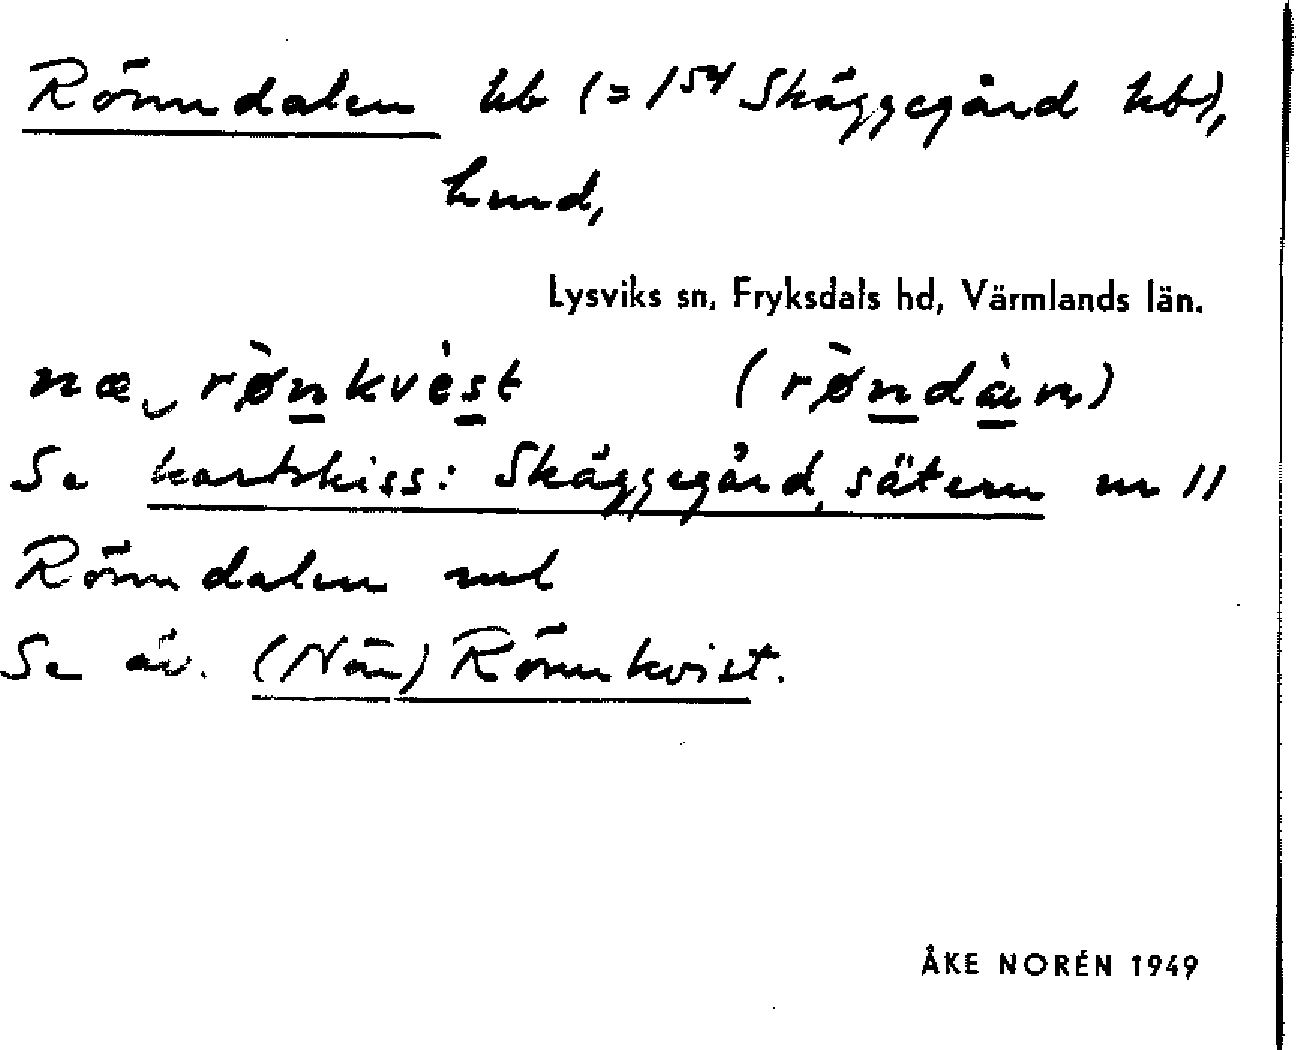 Rönndalen hb (= 1⁵⁴ Skäggegård hb),
hmd,
Lysviks sn, Fryksdals hd, Värmlands län.
næ‿rø̀nkvèst (rø̀ndàn)
Se kartskiss: Skäggegård, sätern nr 11
Rönndalen
Se äv. (Nön) Rönnkvist.
ÅKE NORÉN 1949